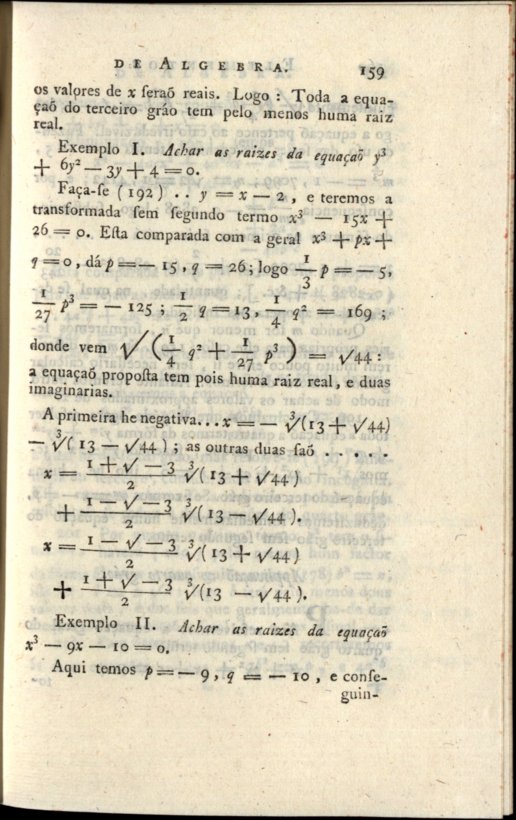 DE ALGEBRA. 159
os valores de x seraõ reais. Logo : Toda a equa-
çaõ do terceiro gráo tem pelo menos huma raiz
real.
Exemplo I. Achar as raizes da equaçaõ y³
+ 6y² — 3y + 4 = 0.
Faça-se (192) .. y = x — 2, e teremos a
transformada sem segundo termo x³ — 15x +
26 = 0. Esta comparada com a geral x³ + px +
q = 0, dá p = — 15, q = 26; logo 1/3 p = — 5,
1/27 p³ = — 125; 1/2 q = 13, 1/4 q² = 169;
donde vem √(1/4 q² + 1/27 p³) = √44:
a equaçaõ proposta tem pois huma raiz real, e duas
imaginarias.
A primeira he negativa... x = — ³√(13 + √44)
— ³√(13 — √44); as outras duas saõ . . . . .
x = (1 + √ — 3)/2 ³√(13 + √44)
+ (1 — √ — 3)/2 ³√(13 — √44).
x = (1 — √ — 3)/2 ³√(13 + √44)
+ (1 + √ — 3)/2 ³√(13 — √44).
Exemplo II. Achar as raizes da equaçaõ
x³ — 9x — 10 = 0,
Aqui temos p = — 9, q = — 10, e conse-
guin-